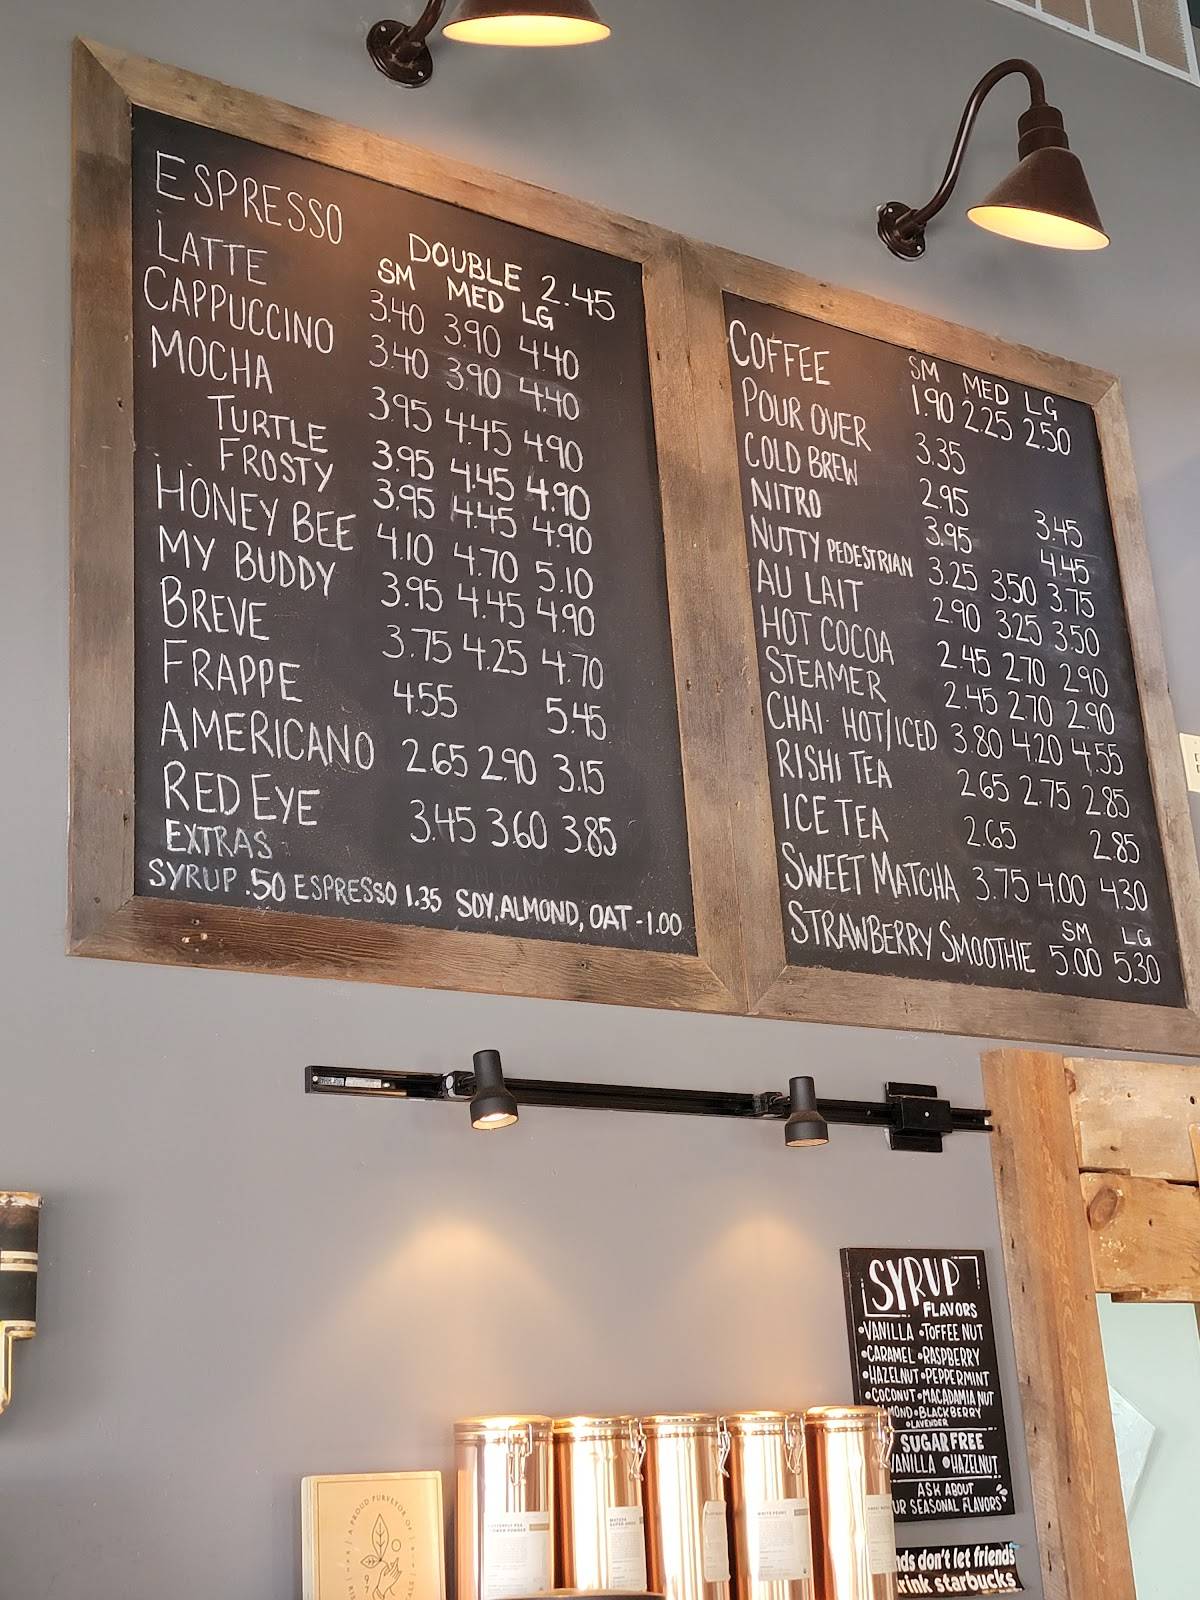 ESPRESSO DOUBLE 2.45
SM MED LG
LATTE 3.40 3.90 4.40
CAPPUCCINO 3.40 3.90 4.40
MOCHA 3.95 4.45 4.90
TURTLE 3.95 4.45 4.90
FROSTY 3.95 4.45 4.90
HONEY BEE 4.10 4.70 5.10
MY BUDDY 3.95 4.45 4.90
BREVE 3.75 4.25 4.70
FRAPPE 4.55 5.45
AMERICANO 2.65 2.90 3.15
RED EYE 3.45 3.60 3.85
EXTRAS
SYRUP .50 ESPRESSO 1.35 SOY, ALMOND, OAT - 1.00
SM MED LG
COFFEE 1.90 2.25 2.50
POUR OVER 3.35
COLD BREW 2.95 3.45
NITRO 3.95 4.45
NUTTY PEDESTRIAN 3.25 3.50 3.75
AU LAIT 2.90 3.25 3.50
HOT COCOA 2.45 2.70 2.90
STEAMER 2.45 2.70 2.90
CHAI HOT/ICED 3.80 4.20 4.55
RISHI TEA 2.65 2.75 2.85
ICE TEA 2.65 2.85
SWEET MATCHA 3.75 4.00 4.30
SM LG
STRAWBERRY SMOOTHIE 5.00 5.30
SYRUP
FLAVORS
•VANILLA •TOFFEE NUT
•CARAMEL •RASPBERRY
•HAZELNUT •PEPPERMINT
•COCONUT •MACADAMIA NUT
MOND •BLACKBERRY
•LAVENDER
SUGAR FREE
VANILLA •HAZELNUT
ASK ABOUT
UR SEASONAL FLAVORS
nds don't let friends
rink starbucks
A PROUD PURVEYOR OF
WHITE PEONY